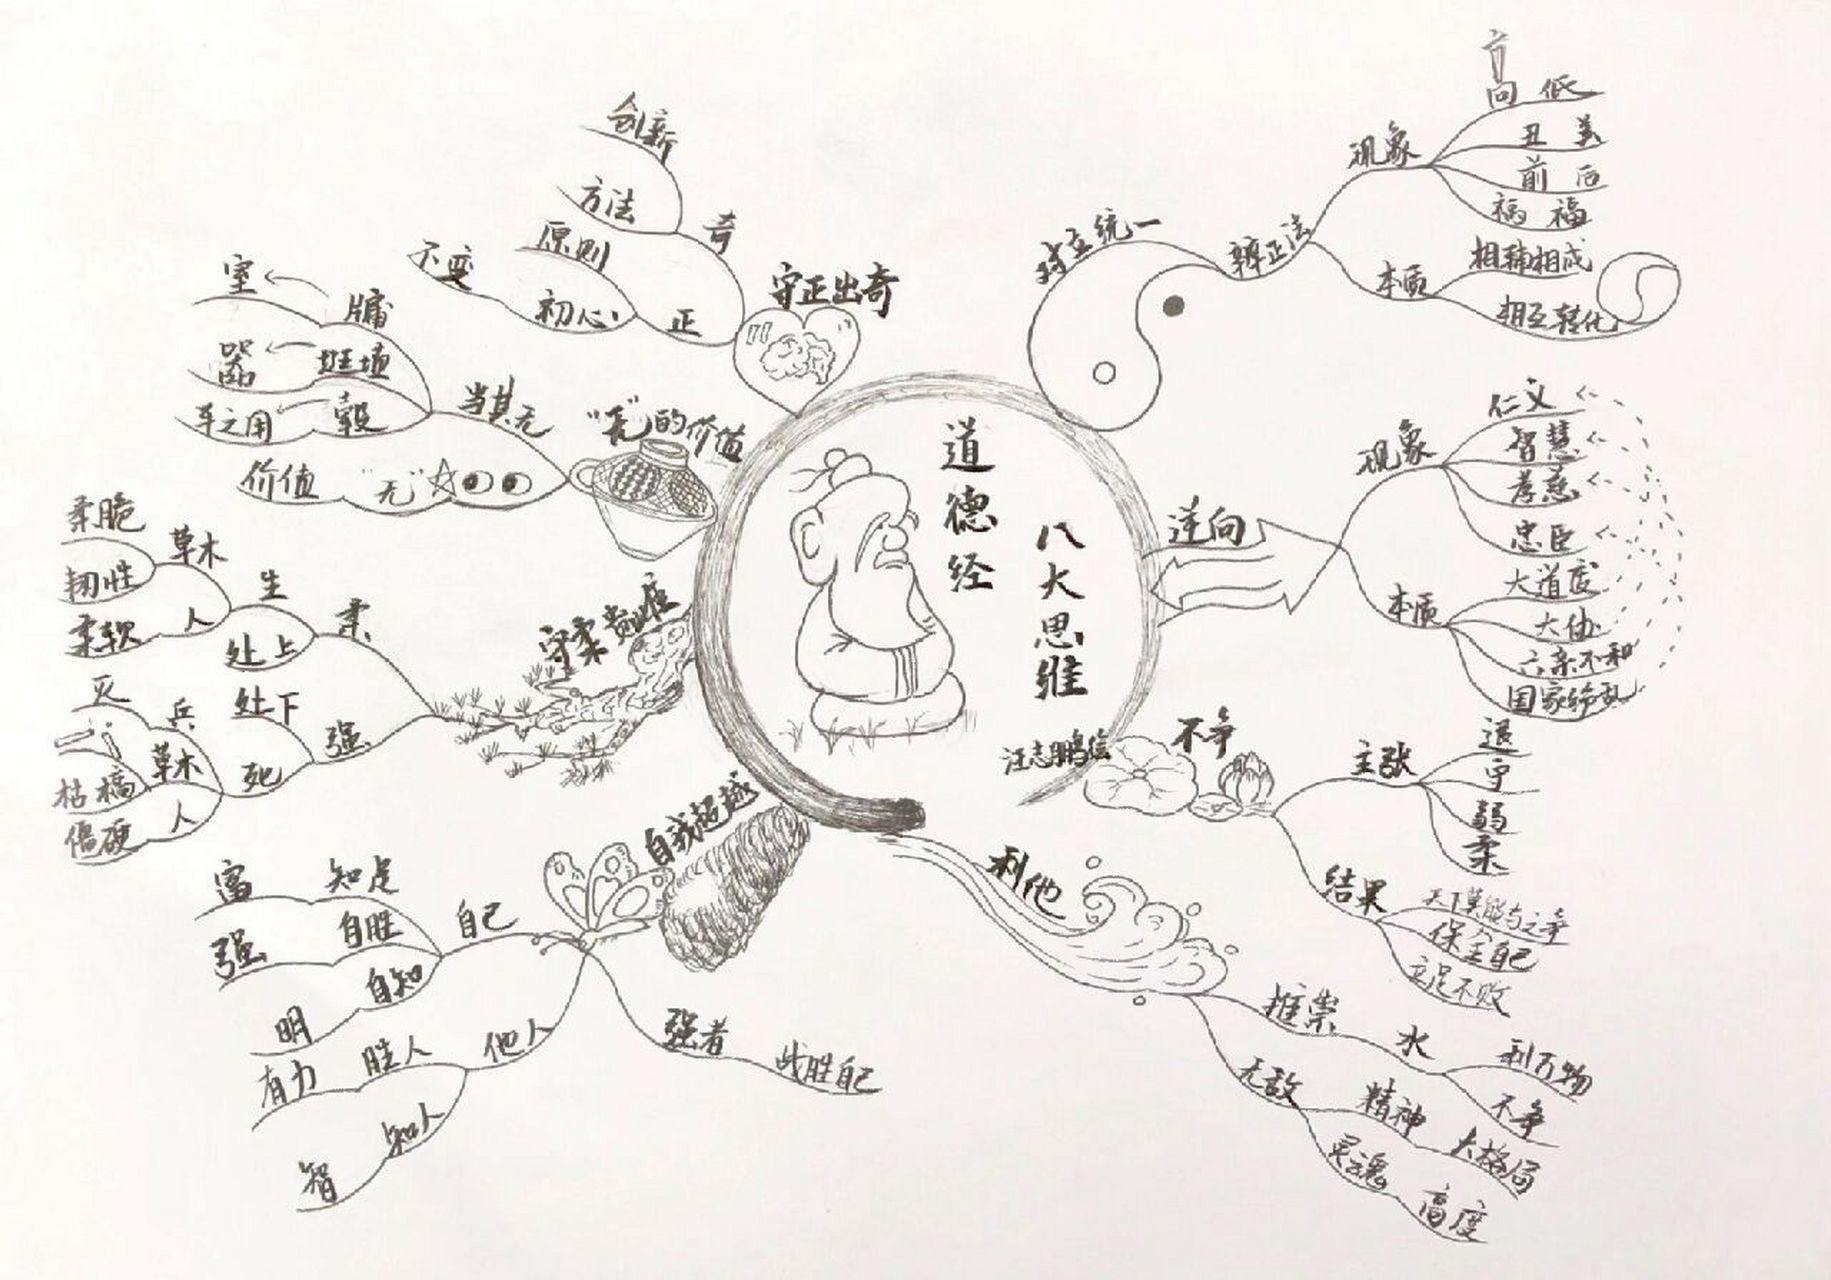 道德经
八大思维
对立统一
辨正法
现象
高 低
丑 美
前 后
祸 福
本质
相辅相成
相互转化
逆向
现象
仁义
智慧
孝慈
忠臣
本质
大道废
大伪
六亲不和
国家
不争
主张
退
守
弱
柔
结果
天下莫能与之争
保全自己
立足不败
利他
推崇
水
利万物
不争
无敌
精神
大格局
灵魂
高度
自我超越
强者
战胜自己
自己
知足
富
自胜
强
自知
明
他人
胜人
有力
知人
智
守柔
柔
生
草木
柔脆
韧性
人
柔软
处上
强
处下
死
兵
灭
草木
枯槁
人
僵硬
"无"的价值
当其无
牖
室
埏埴
器
毂
车之用
"无"
价值
守正出奇
奇
创新
方法
正
原则
初心
不变